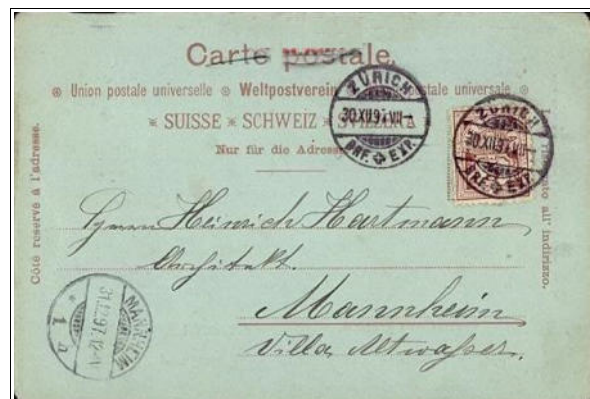 Carte postale.
Union postale universelle Weltpostverein postale universale
SUISSE * SCHWEIZ * SVIZZERA
Nur für die Adresse
Côté réservé à l'adresse.
all' indirizzo.
ZÜRICH
30.XII.97.VII-
BRF. EXP.
ZÜRICH
30.XII.97.VII-
BRF. EXP.
Herrn Heinrich Hartmann
Architekt.
Mannheim
Villa Altwasser.
MANNHEIM
31.12.97.
1. a